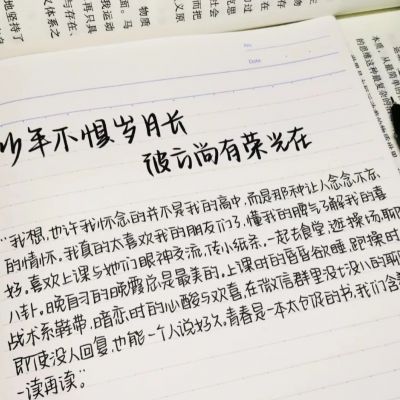 地坚持了
义体系之
与存在、
再只具
我运动
面。马
物质
No.
Date
少年不惧岁月长
彼方尚有荣光在
"我想,也许我怀念的并不是我的高中,而是那种让人念念不忘
的情怀。我真的太喜欢我的朋友们了,懂我的脾气了解我的喜
好。喜欢上课与她们眼神交流,传小纸条,一起去食堂,逛操场,聊
八卦。晚自习的晚霞总是最美的,上课时的昏昏欲睡,跑操时
战术系鞋带,暗恋时的心酸与欢喜,在微信群里没七没八的聊
即使没人回复,也能一个人说好久。青春是一本太仓促的书,我们含
一读再读。"